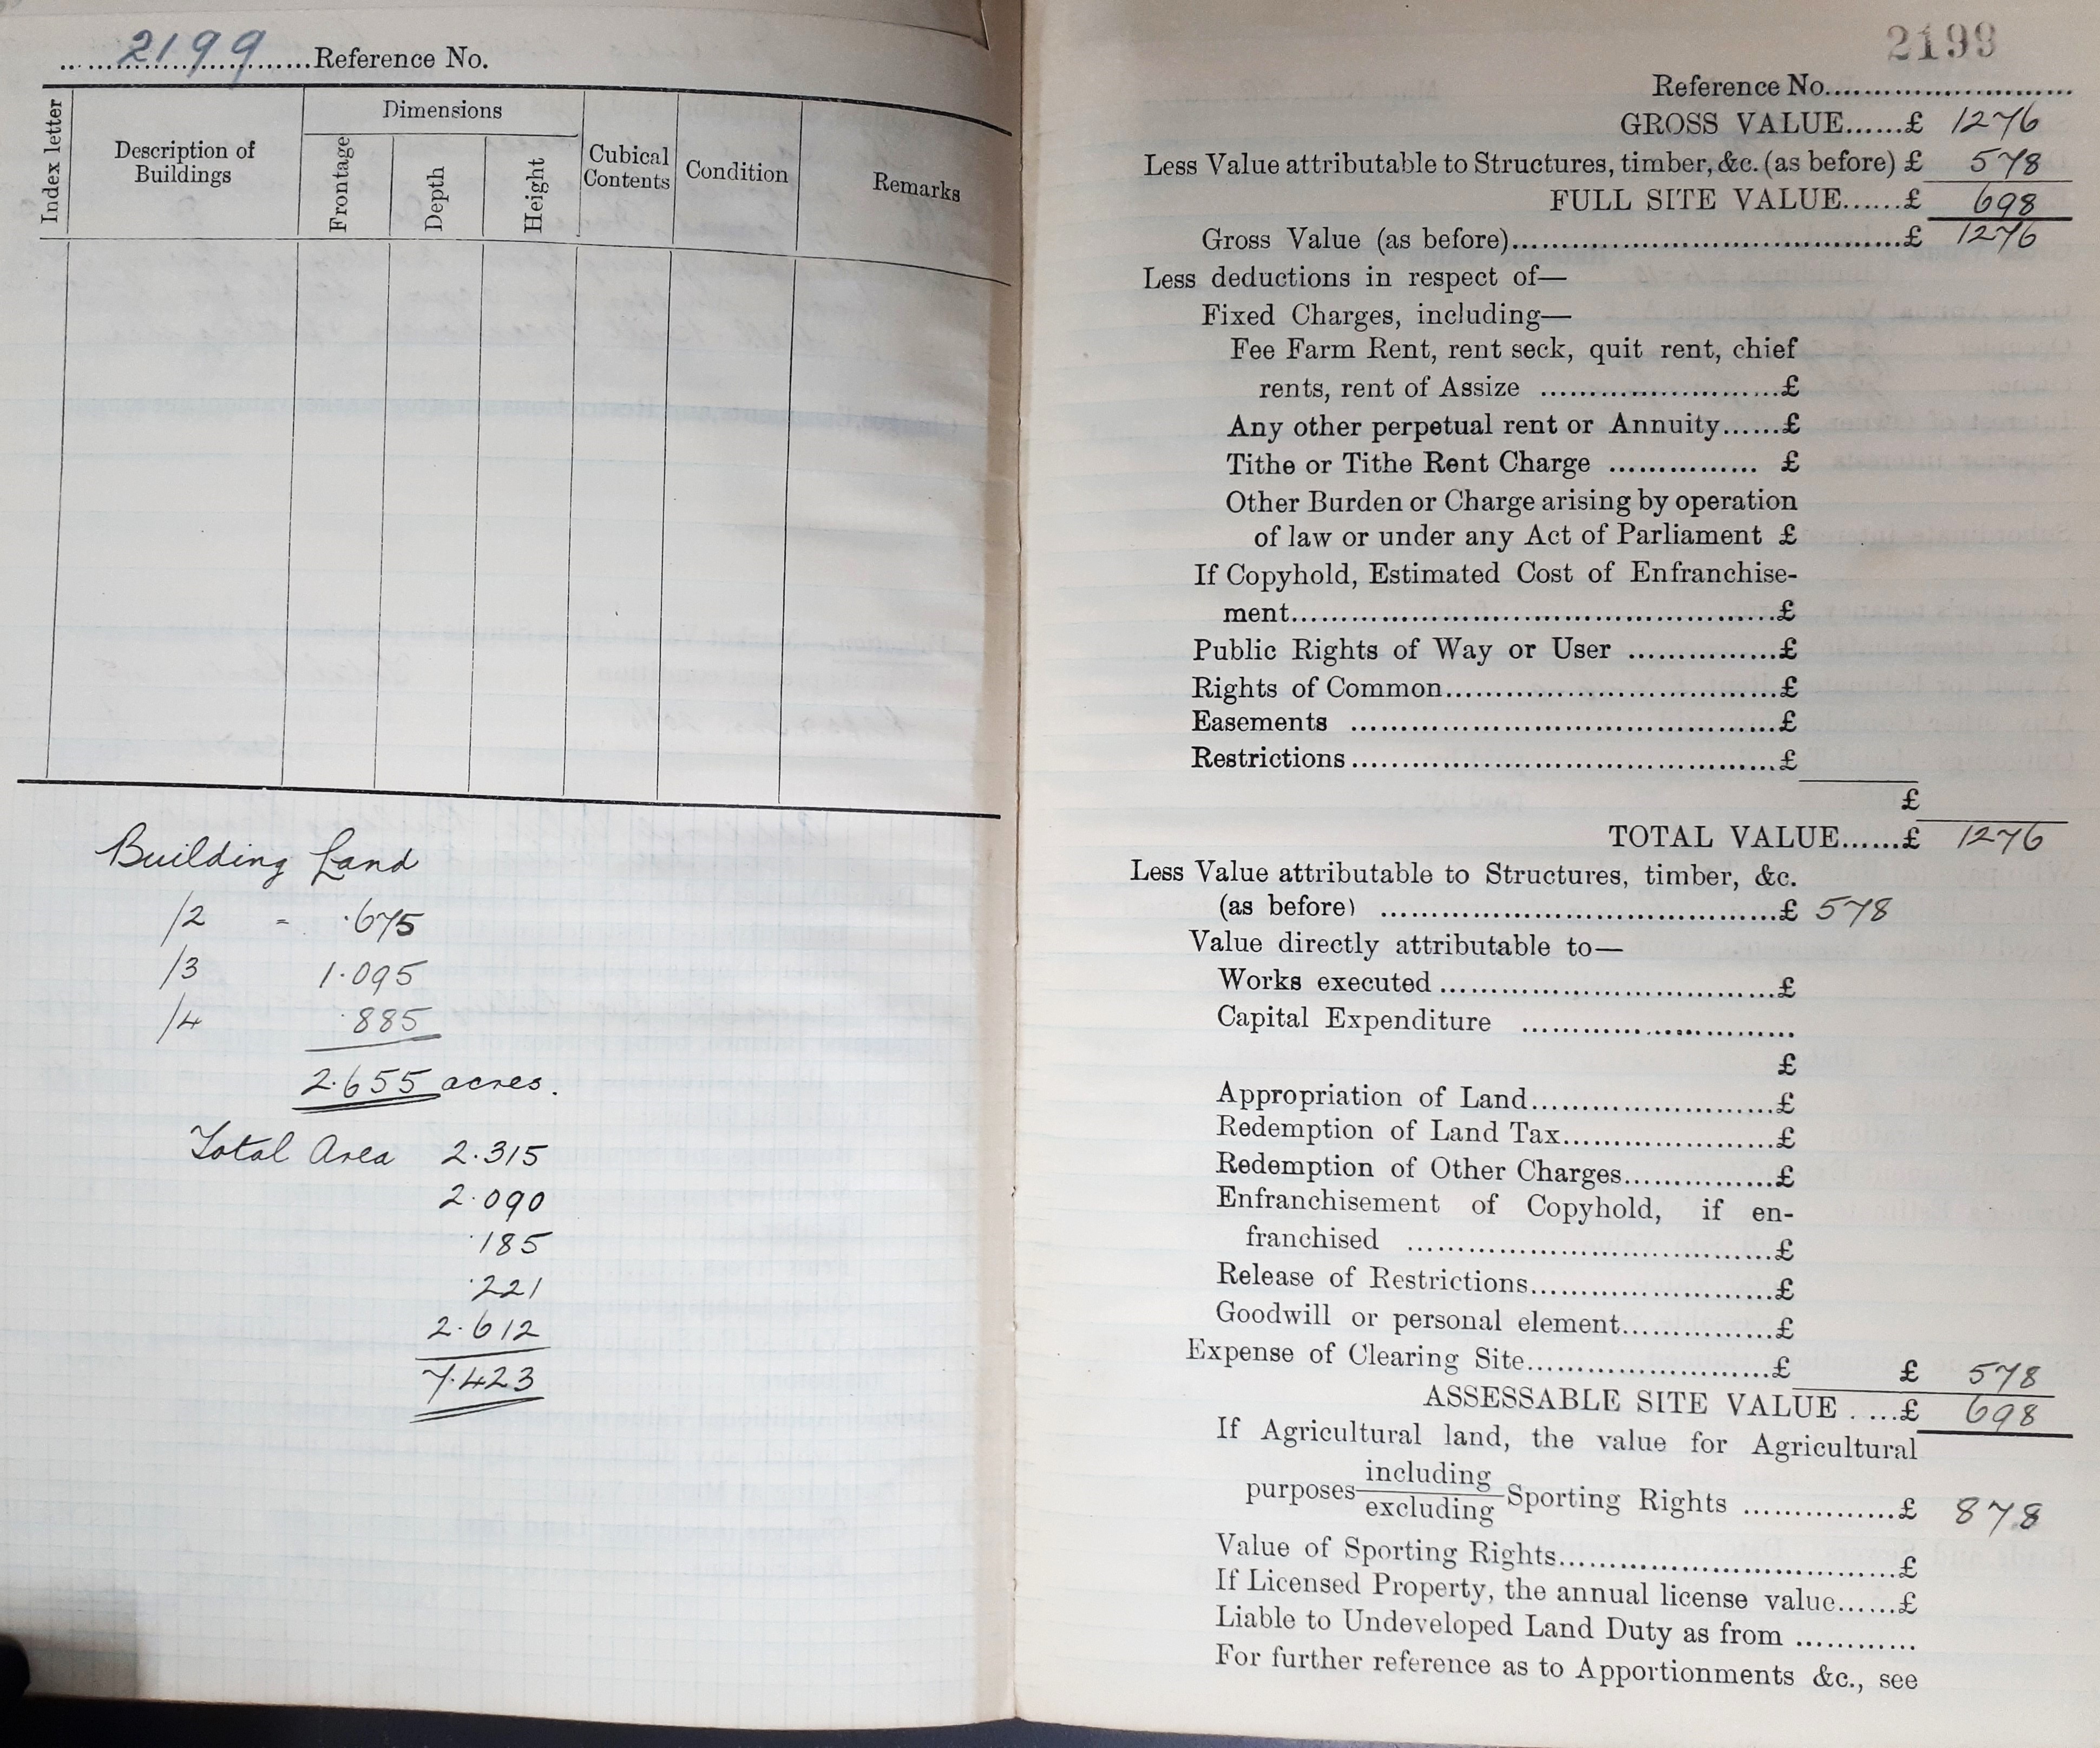 2199 Reference No.
Index letter
Description of
Buildings
Dimensions
Frontage
Depth
Height
Cubical
Contents
Condition
Remarks
Building Land
/2 - .675
/3 1.095
/4 .885
2.655 acres.
Total Area 2.315
2.090
.185
.221
2.612
7.423
2199
Reference No.
GROSS VALUE......£ 1276
Less Value attributable to Structures, timber, &c. (as before) £ 578
FULL SITE VALUE......£ 698
Gross Value (as before)......£ 1276
Less deductions in respect of—
Fixed Charges, including—
Fee Farm Rent, rent seck, quit rent, chief
rents, rent of Assize ......£
Any other perpetual rent or Annuity......£
Tithe or Tithe Rent Charge ...... £
Other Burden or Charge arising by operation
of law or under any Act of Parliament £
If Copyhold, Estimated Cost of Enfranchise-
ment......£
Public Rights of Way or User ......£
Rights of Common......£
Easements ......£
Restrictions......£
£
TOTAL VALUE......£ 1276
Less Value attributable to Structures, timber, &c.
(as before) ......£ 578
Value directly attributable to—
Works executed ......£
Capital Expenditure ......
£
Appropriation of Land......£
Redemption of Land Tax......£
Redemption of Other Charges......£
Enfranchisement of Copyhold, if en-
franchised ......£
Release of Restrictions......£
Goodwill or personal element......£
Expense of Clearing Site......£ £ 578
ASSESSABLE SITE VALUE ....£ 698
If Agricultural land, the value for Agricultural
purposes including
excluding Sporting Rights ......£ 878
Value of Sporting Rights......£
If Licensed Property, the annual license value......£
Liable to Undeveloped Land Duty as from ......
For further reference as to Apportionments &c., see